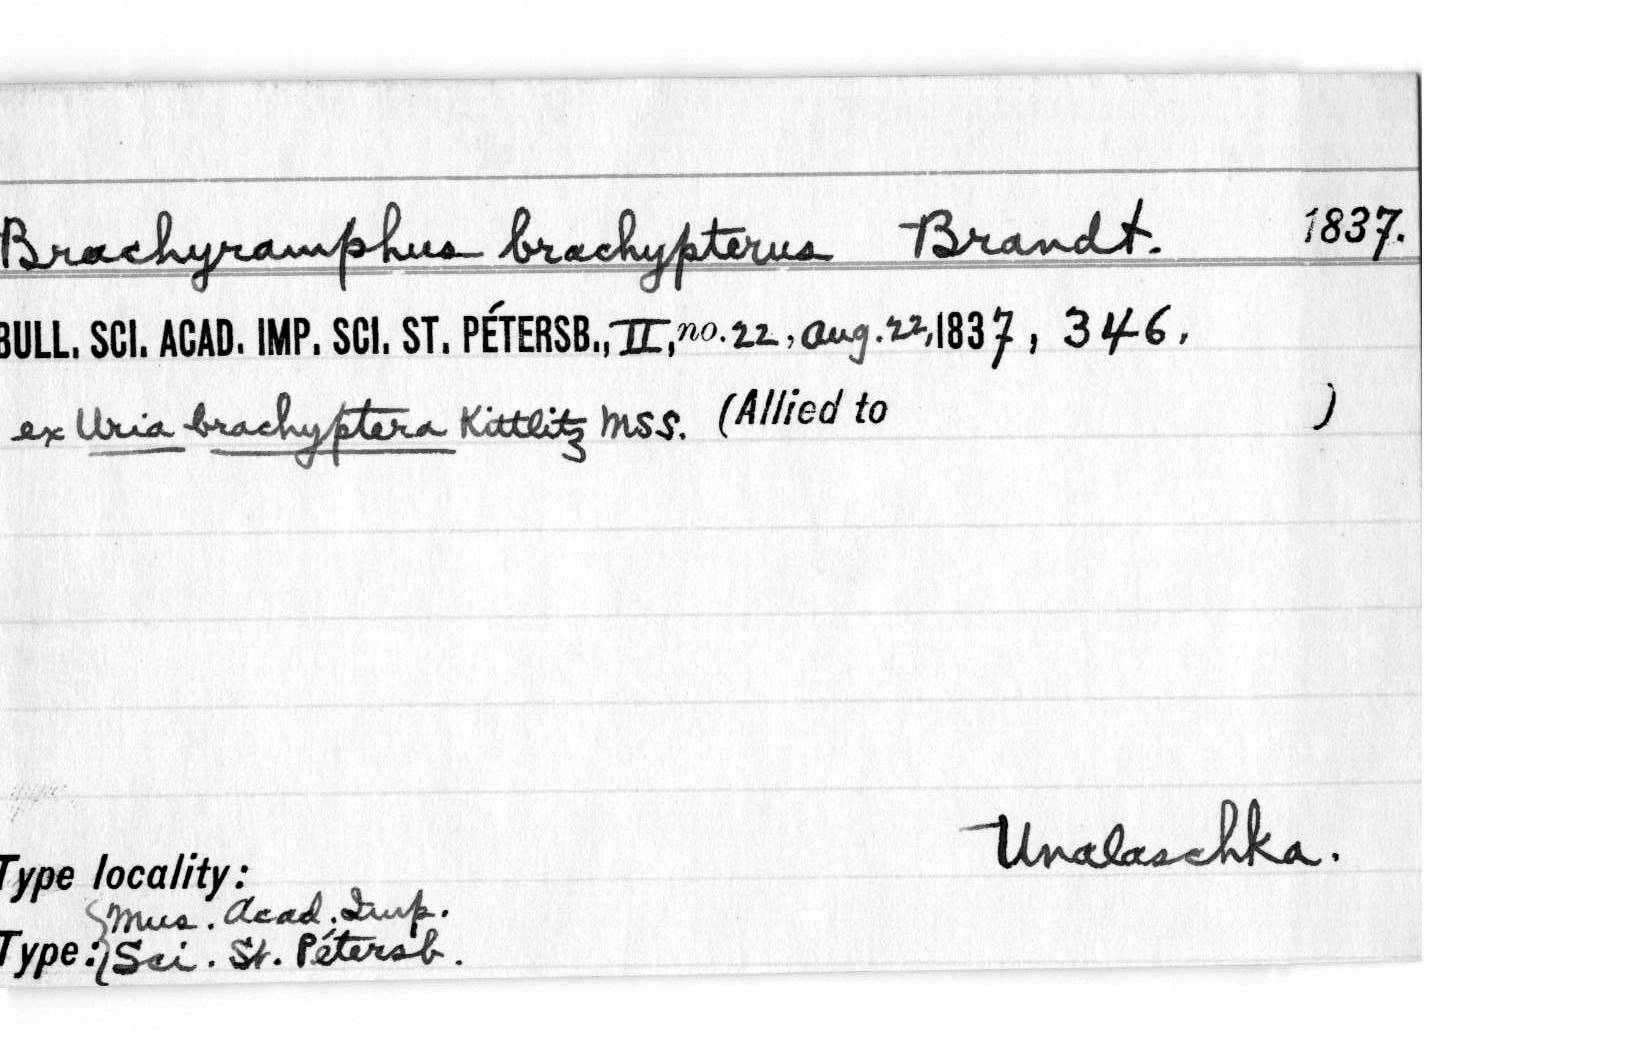 Brachyramphus brachypterus Brandt. 1837.
BULL. SCI. ACAD. IMP. SCI. ST. PÉTERSB., II, no. 22, Aug. 22, 1837, 346.
ex Uria brachyptera Kittlitz MSS. (Allied to )
Unalaschka.
Type locality:
Mus. Acad. Imp.
Type: Sci. St. Pétersb.